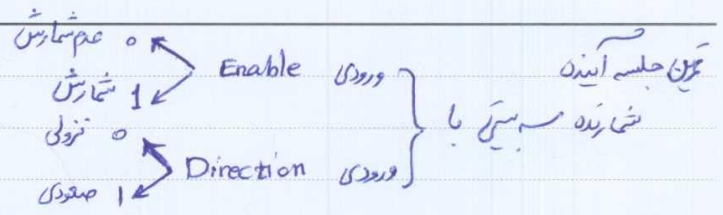 تمرین جلسه آینده
شمارنده سه بیتی با
ورودی Enable
0 عدم شمارش
1 شمارش
ورودی Direction
0 نزولی
1 صعودی